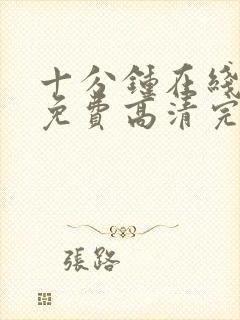 十分鍾在綫
免費高清完
張路